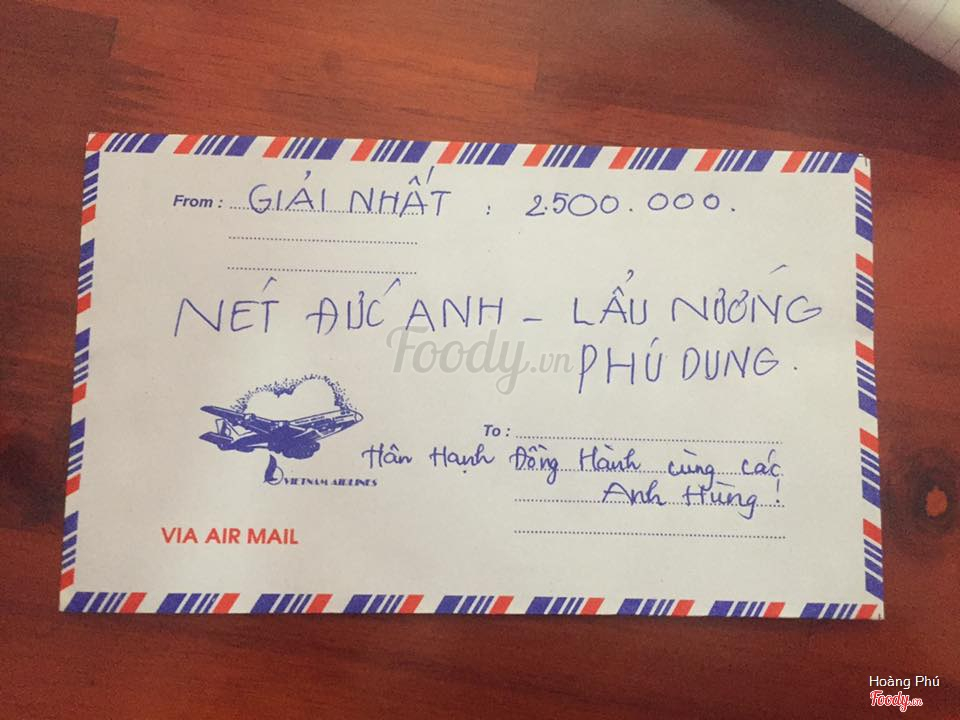 From : GIẢI NHẤT : 2.500.000.
NÉT ĐỨC ANH - LẨU NƯỚNG
PHÚ DUNG.
Foody.vn
To :
Hân Hạnh Đồng Hành cùng các
Anh Hùng!
VIETNAM AIRLINES
VIA AIR MAIL
Hoàng Phú
Foody.vn